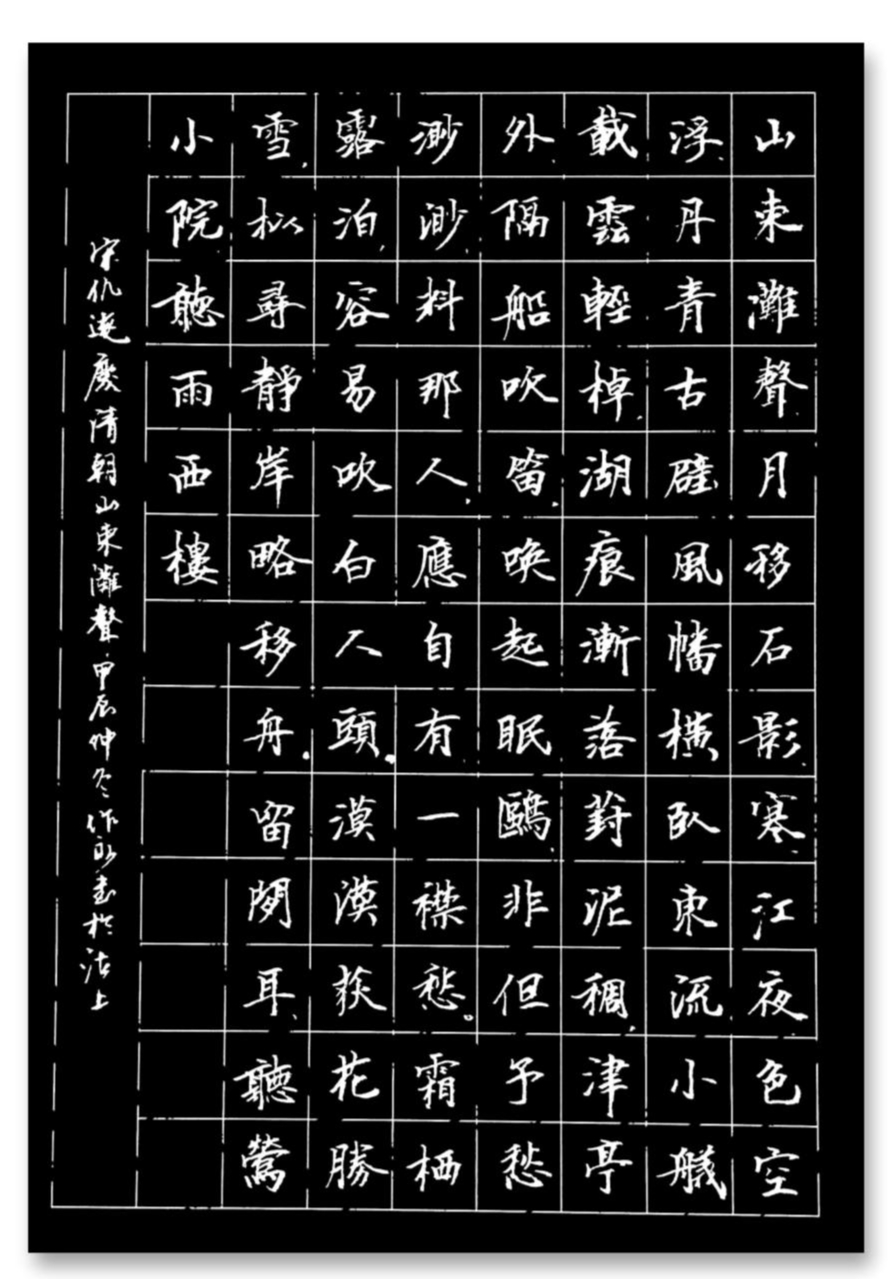 山東灘聲月移石影寒江夜色空
浮丹青古壁風幡橫臥東流小艤
載雲輕棹湖痕漸落葑泥稠津亭
外隔船吹笛喚起眠鷗非但予愁
渺渺料那人應自有一襟愁霜栖
露泊容易吹白人頭漠漠荻花勝
雪擬尋靜岸略移舟留閒耳聽鶯
小院聽雨西樓
宋仇遠慶清朝山東灘聲甲辰仲冬作永書於沽上